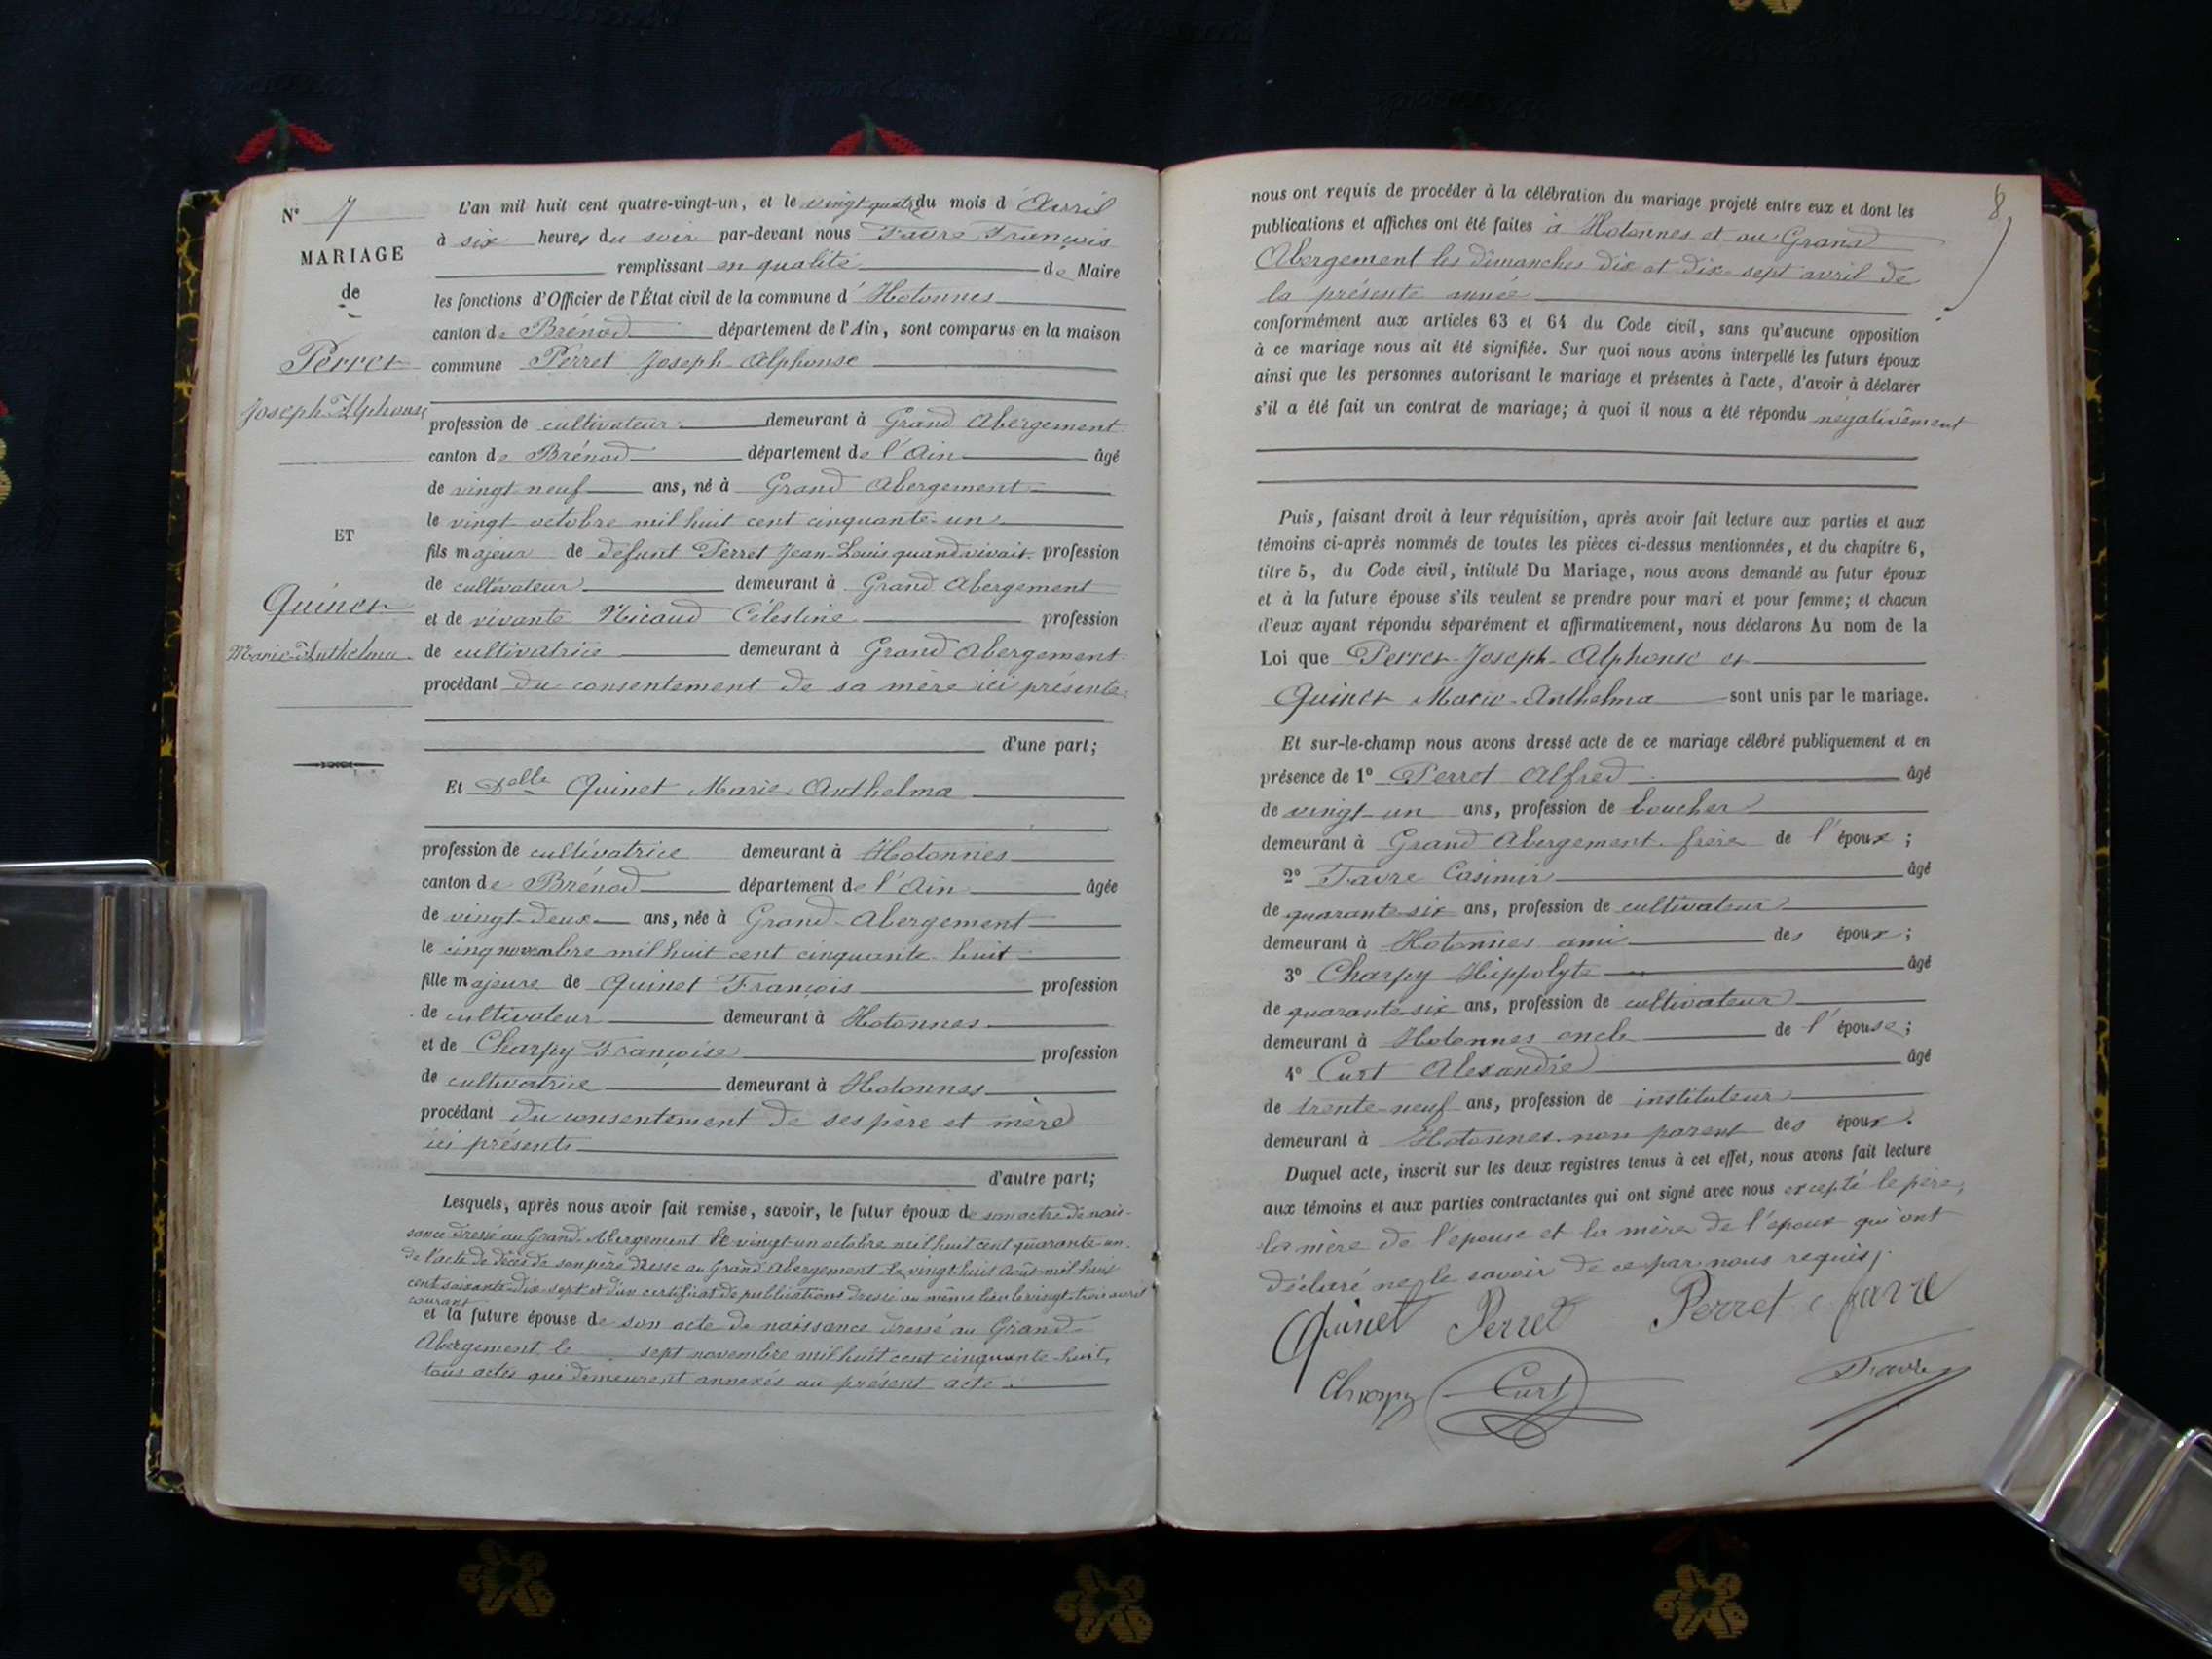 N° 7
MARIAGE
de
Perret
Joseph-Alphonse
ET
Quinet
Marie-Anthelma
L'an mil huit cent quatre-vingt-un, et le vingt quatre du mois d'Avril
à six heures du soir par-devant nous Favre François
remplissant en qualité de Maire
les fonctions d'Officier de l'État civil de la commune d'Hotonnes
canton de Brénod département de l'Ain, sont comparus en la maison
commune Perret Joseph-Alphonse
profession de cultivateur demeurant à Grand Abergement
canton de Brénod département de l'Ain âgé
de vingt neuf ans, né à Grand Abergement
le vingt octobre mil huit cent cinquante-un
fils majeur de défunt Perret Jean-Louis quand vivait profession
de cultivateur demeurant à Grand Abergement
et de vivante Nicaud Célestine profession
de cultivatrice demeurant à Grand Abergement
procédant du consentement de sa mère ici présente
d'une part;
Et Delle Quinet Marie Anthelma
profession de cultivatrice demeurant à Hotonnes
canton de Brénod département de l'Ain âgée
de vingt-deux ans, née à Grand-Abergement
le cinq novembre mil huit cent cinquante-huit
fille majeure de Quinet François profession
de cultivateur demeurant à Hotonnes
et de Charpy Françoise profession
de cultivatrice demeurant à Hotonnes
procédant du consentement de ses père et mère
ici présents
d'autre part;
Lesquels, après nous avoir fait remise, savoir, le futur époux de son acte de nais-
sance dressé au Grand-Abergement le vingt-un octobre mil huit cent quarante-un.
de l'acte de décès de son père dressé au Grand Abergement le vingt-huit août mil huit
cent soixante-dix-sept et d'un certificat de publications dressé au même lieu le vingt-trois avril
courant
et la future épouse de son acte de naissance dressé au Grand-
Abergement le sept novembre mil huit cent cinquante-huit,
tous actes qui demeurent annexés au présent acte.
8
nous ont requis de procéder à la célébration du mariage projeté entre eux et dont les
publications et affiches ont été faites à Hotonnes et au Grand
Abergement les dimanches dix et dix-sept avril de
la présente année
conformément aux articles 63 et 64 du Code civil, sans qu'aucune opposition
à ce mariage nous ait été signifiée. Sur quoi nous avons interpellé les futurs époux
ainsi que les personnes autorisant le mariage et présentes à l'acte, d'avoir à déclarer
s'il a été fait un contrat de mariage; à quoi il nous a été répondu négativement
Puis, faisant droit à leur réquisition, après avoir fait lecture aux parties et aux
témoins ci-après nommés de toutes les pièces ci-dessus mentionnées, et du chapitre 6,
titre 5, du Code civil, intitulé Du Mariage, nous avons demandé au futur époux
et à la future épouse s'ils veulent se prendre pour mari et pour femme; et chacun
d'eux ayant répondu séparément et affirmativement, nous déclarons Au nom de la
Loi que Perret Joseph-Alphonse et
Quinet Marie-Anthelma sont unis par le mariage.
Et sur-le-champ nous avons dressé acte de ce mariage célébré publiquement et en
présence de 1° Perret Alfred âgé
de vingt-un ans, profession de boucher
demeurant à Grand Abergement frère de l'époux;
2° Favre Casimir âgé
de quarante-six ans, profession de cultivateur
demeurant à Hotonnes ami des époux;
3° Charpy Hippolyte âgé
de quarante-six ans, profession de cultivateur
demeurant à Hotonnes oncle de l'épouse;
4° Curt Alexandre âgé
de trente-neuf ans, profession de instituteur
demeurant à Hotonnes non parent des époux.
Duquel acte, inscrit sur les deux registres tenus à cet effet, nous avons fait lecture
aux témoins et aux parties contractantes qui ont signé avec nous excepté le père,
la mère de l'épouse et la mère de l'époux qui ont
déclaré ne le savoir de ce par nous requis.
Quinet Perret Perret Favre
Charpy Curt Favre